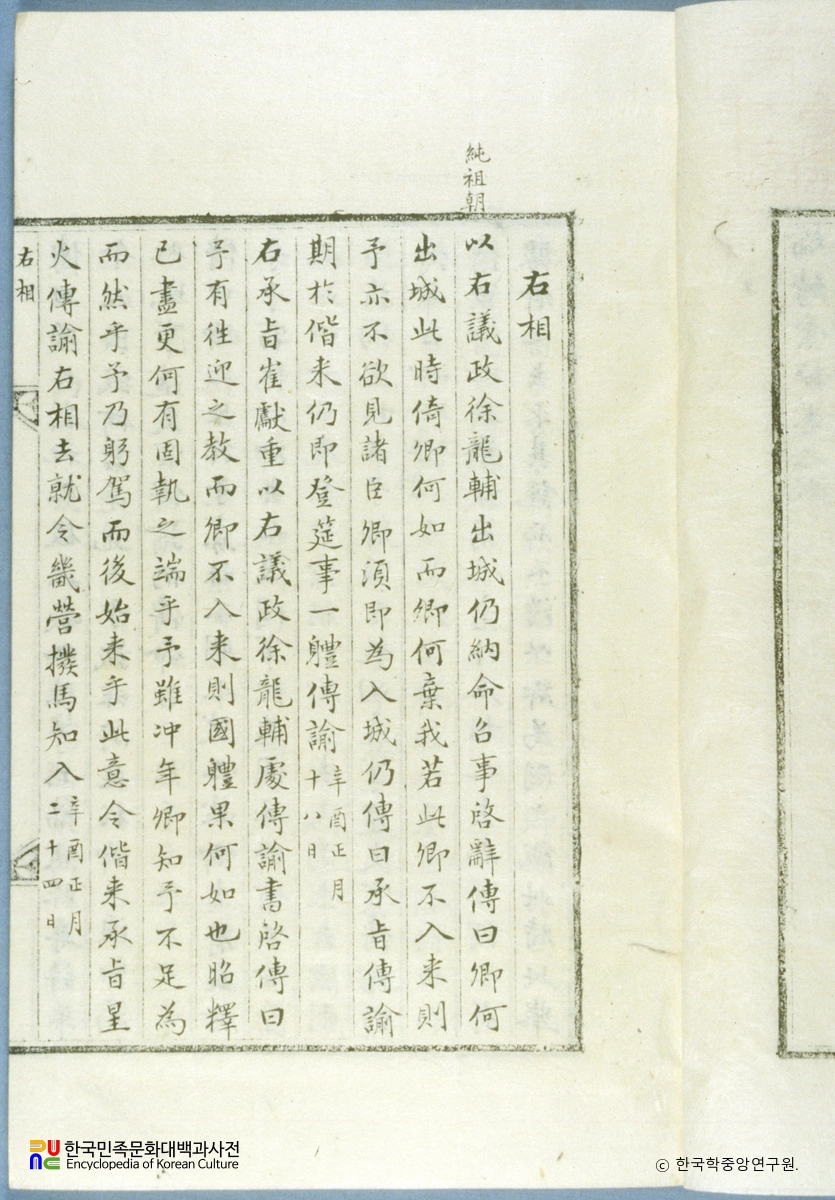 純祖朝
右相
以右議政徐龍輔出城仍納命召事啓辭傳曰卿何
出城此時倚卿何如而卿何棄我若此卿不入来則
予亦不欲見諸臣卿湏即為入城仍傳曰承旨傳諭
期扵偕来仍即登筵事一軆傳諭辛酉正月十八日
右承旨崔獻重以右議政徐龍輔處傳諭書啓傳曰
予有徃迎之教而卿不入来則國軆果何如也昭釋
已盡更何有固執之端乎予雖冲年卿知予不足為
而然乎予乃躬駕而後始来乎此意令偕来承旨星
火傳諭右相去就令畿營撥馬知入辛酉正月二十四日
右相
한국민족문화대백과사전
Encyclopedia of Korean Culture
ⓒ 한국학중앙연구원.